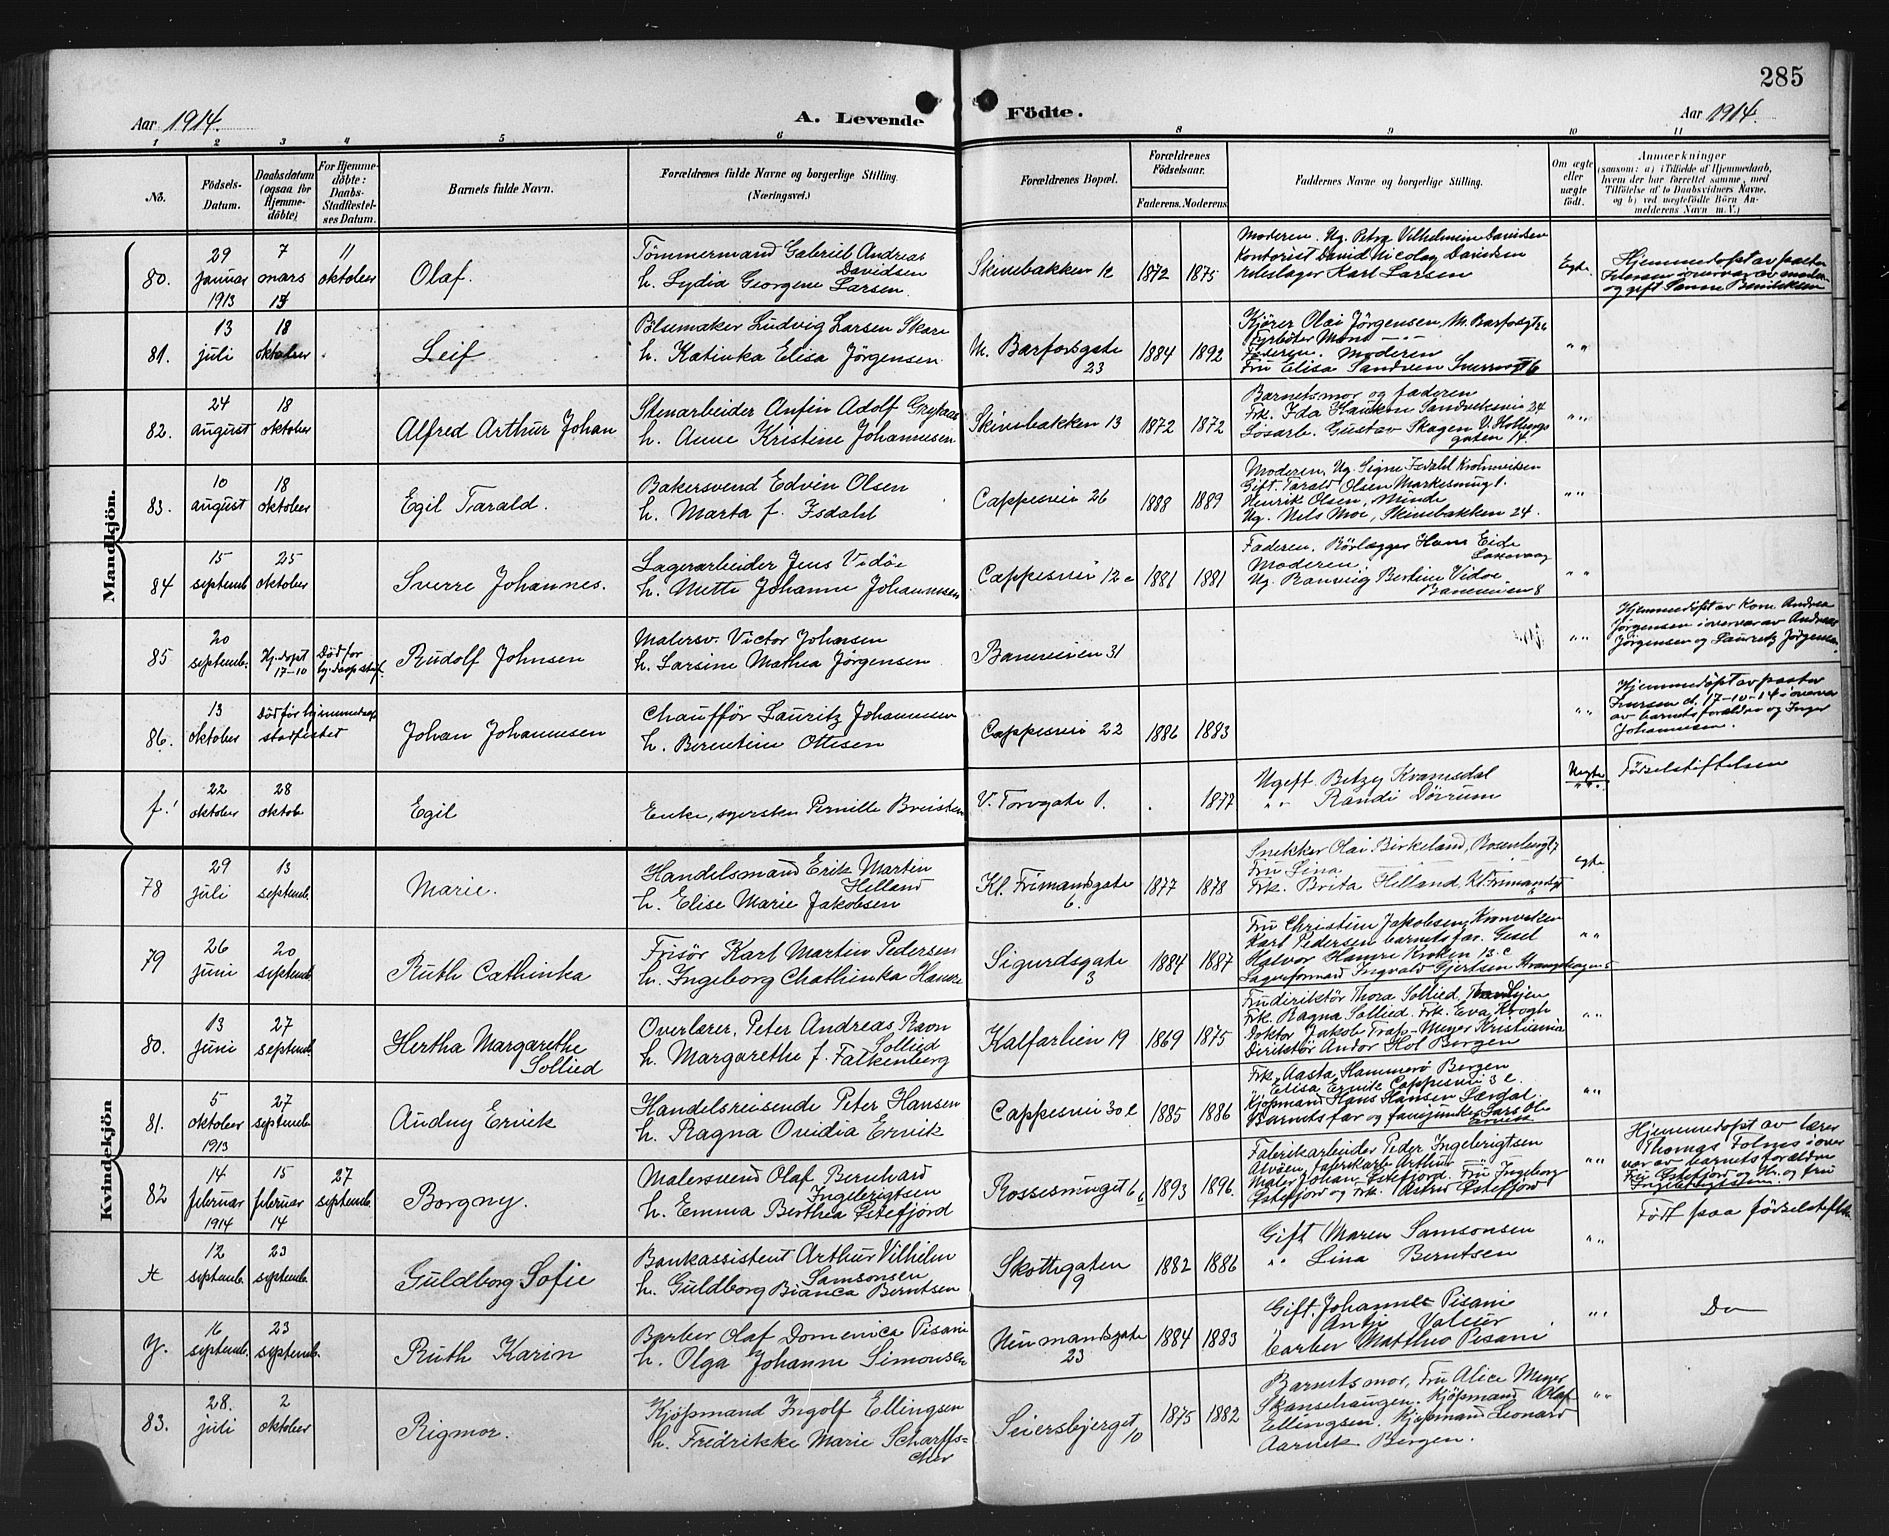 285
Aar 1914.
A. Levende Födte.
Aar 1914.
1 2 3 4 5 6 8 9 10 11
No.
Födsels-Datum.
Daabsdatum (ogsaa för Hjemme-döbte)
For Hjemme-döbte: Daabs-Stadfæstel-ses Datum.
Barnets fulde Navn.
Forældrenes fulde Navne og borgerlige Stilling. (Næringsvei.)
Forældrenes Bopæl.
Forældrenes Födselsaar.
Faderens. Moderens.
Faddernes Navne og borgerlige Stilling.
Om ægte eller uægte födt.
Anmærkninger
(saasom: a) i Tilfælde af Hjemmedaab, hvem der har forrettet samme, med Tilföielse af to Daabsvidners Navne, og b) ved uægtefödte Börn An-melderens Navn m. V.)
Mandkjön.
80. 29 januar 1913 7 mars 13 11 oktober Olaf.
Tömmermand Gabriel Andreas Davidsen
h. Lydia Georgine Larsen
Skivebakken 12 1872 1875
Moderen. Ug. Petra Vilhelmine Davidsen
Kontorist David Nicolay Davidsen
rebslager Karl Larsen
Egte
Hjemmedöpt av pastor
81. 13 juli 18 oktober Leif
Ludvig Larsen Skare
h. Katinka Elisa Jörgensen
M. Barfotsgate 23 1884 1892
Kjörer Olai Jörgensen, M. Barfotsgt 26
Fyrböter Mons —
Faderen. Moderen
Fru Elisa Sandven
" "
82. 24 august 18 oktober Alfred Arthur Johan
Stenarbeider Anfin Adolf
h. Anne Kristine Johannesen
Skivebakken 13 1872 1872
Barnets mor og faderen
Frk. Ida Hauken Sandviksvei 24
Lösarb. Gustav Skagen V. Holbergs gaten 14.
" "
83. 10 august 18 oktober Egil Tarald.
Bakersvend Edvin Olsen
h. Marta f. Isdahl
Cappesvei 26 1888 1889
Moderen, Ug. Signe Isdahl
Gift. Tarald Olsen Markesmug 1.
Henrik Olsen, Minde
Ug. Nels Moe, Skivebakken 24.
" "
84 15 septemb. 25 oktober Sverre Johannes.
Lagerarbeider Jens Vidöe
h. Mette Johanne Johannesen
Cappesvei 12c 1881 1881
Faderen, Rörlægger Hans Eide Laksevaag
Moderen,
Ug. Bertine Vidöe Baneveien 8
" "
85 20 septemb. Hj.döpt 17–10 Död för hj.daap stadf. Rudolf Johnsen
Malersv. Victor Johnsen
h. Larsine Mathea Jörgensen
Baneveien 31
" "
Hjemmedöpt av Kone Andrea
Jörgensen i overvær av Andreas
Jörgensen og Lauritz Jörgensen.
86. 13 oktober Död för hjemmedaap stadfæstet Johan Johannesen
Chaufför Lauritz Johannesen
h. Berentine Ottesen
Cappesvei 22 1886 1883
" "
Hjemmedöpt av pastor
Iversen d. 17–10–14 i overvær
av barnets forældre og Inger
Johannesen.
f! 22 oktober 28 oktob Egil
Enke, syerske Pernille Breisten
V. Torvgate 1. 1877
Ugift Betzy Kvamsdal
" " Randi Dövrum
Uegte
" "
Födselstiftelsen
Kvindekjön
78 29 juli 13 septemb. Marie.
Handelsmand Erik Martin Helland
h. Elise Marie Jakobsen
Kl. Frimandsgate 6. 1877 1878
Snekker Olai Birkeland, Rosenbergt 7
Fru Lina —
Frk. Brita Helland, Kl. Frimandsgt 6
egte
79 26 juni 20 septemb. Ruth Cathinka
Frisör Karl Martin Pedersen
h. Ingeborg Chathinka Hamre
Sigurdsgate 3 1884 1887
Fru Christine Jakobsen,
Karl Pedersen barnets far.
Halvor Hamre Kroken 13.c
Lagerformand Ingvald Gjertsen
" "
80. 13 juni 27 septemb. Hertha Margarethe Sollied
Overlærer, Peter Andreas Ravn Sollied
h. Margarethe f. Falkenberg
Kalfarlien 19 1869 1875
Frudirektör Thora Sollied,
Frk. Ragna Sollied. Frk. Eva Krogh
Doktor Jakob Trap-Meyer Kristiania
Direktör Andor Hol Bergen
" "
81. 5 oktober 1913 27 septemb. Audny Ervik
Handelsreisende Peter Hansen
h. Ragna Ovidia Ervik
Cappesvei 30 c 1885 1886
Frk. Aasta Hammerö Bergen
Elisa Ervik Cappesvei 3 c.
Kjöpmand Hans Hansen
Barnets far og fanejunker Lars Ervik
" "
82 14 februar 1914 15 februar 14 27 septemb. Borgny.
Malersvend Olaf Bernhard Ingebrigtsen
h. Emma Berthea Estefjord
Rossesmuget 6b 1893 1896.
Fabrikarbeider Peder Ingebrigtsen
Alvöen,
Maler Johan Estefjord. Fru Ingeborg
Estefjord og Frk. Astrid Estefjord
" "
Hjemmedöpt av lærer
Thomas Folnes i over
vær av barnets forældre
Fru Estefjord og Hr. og fru
Ingebrigtsen.
12 septemb. 23 septemb. Guldborg Sofie
Bankassistent Arthur Vilhelm Samsonsen
h. Guldborg Bianca Berntsen
Skottegaten 9 1882 1886
Gift Maren Samsonsen
" Lina Berntsen
" "
Födt paa födselstiftelsen
y. 16 septemb. 23 septemb. Ruth Karin
Barber Olaf Domenica Pisani
h. Olga Johanne Simonsen
Neumandsgate 23 1884 1883
Gift. Johanne Pisani
Antje
barber Mattheo Pisani
" "
Do
83. 28. juli 2 oktober Rigmor.
Kjöpmand Ingolf Ellingsen
h. Fredrikke Marie Scharffscher
Seiersbjerget 10 1875 1882
Barnets mor, Fru Alice Meyer
Skansehaugen. Kjöpmand Olaf
Ellingsen. Kjöpmand Leonard
Aarvik Bergen.
" "